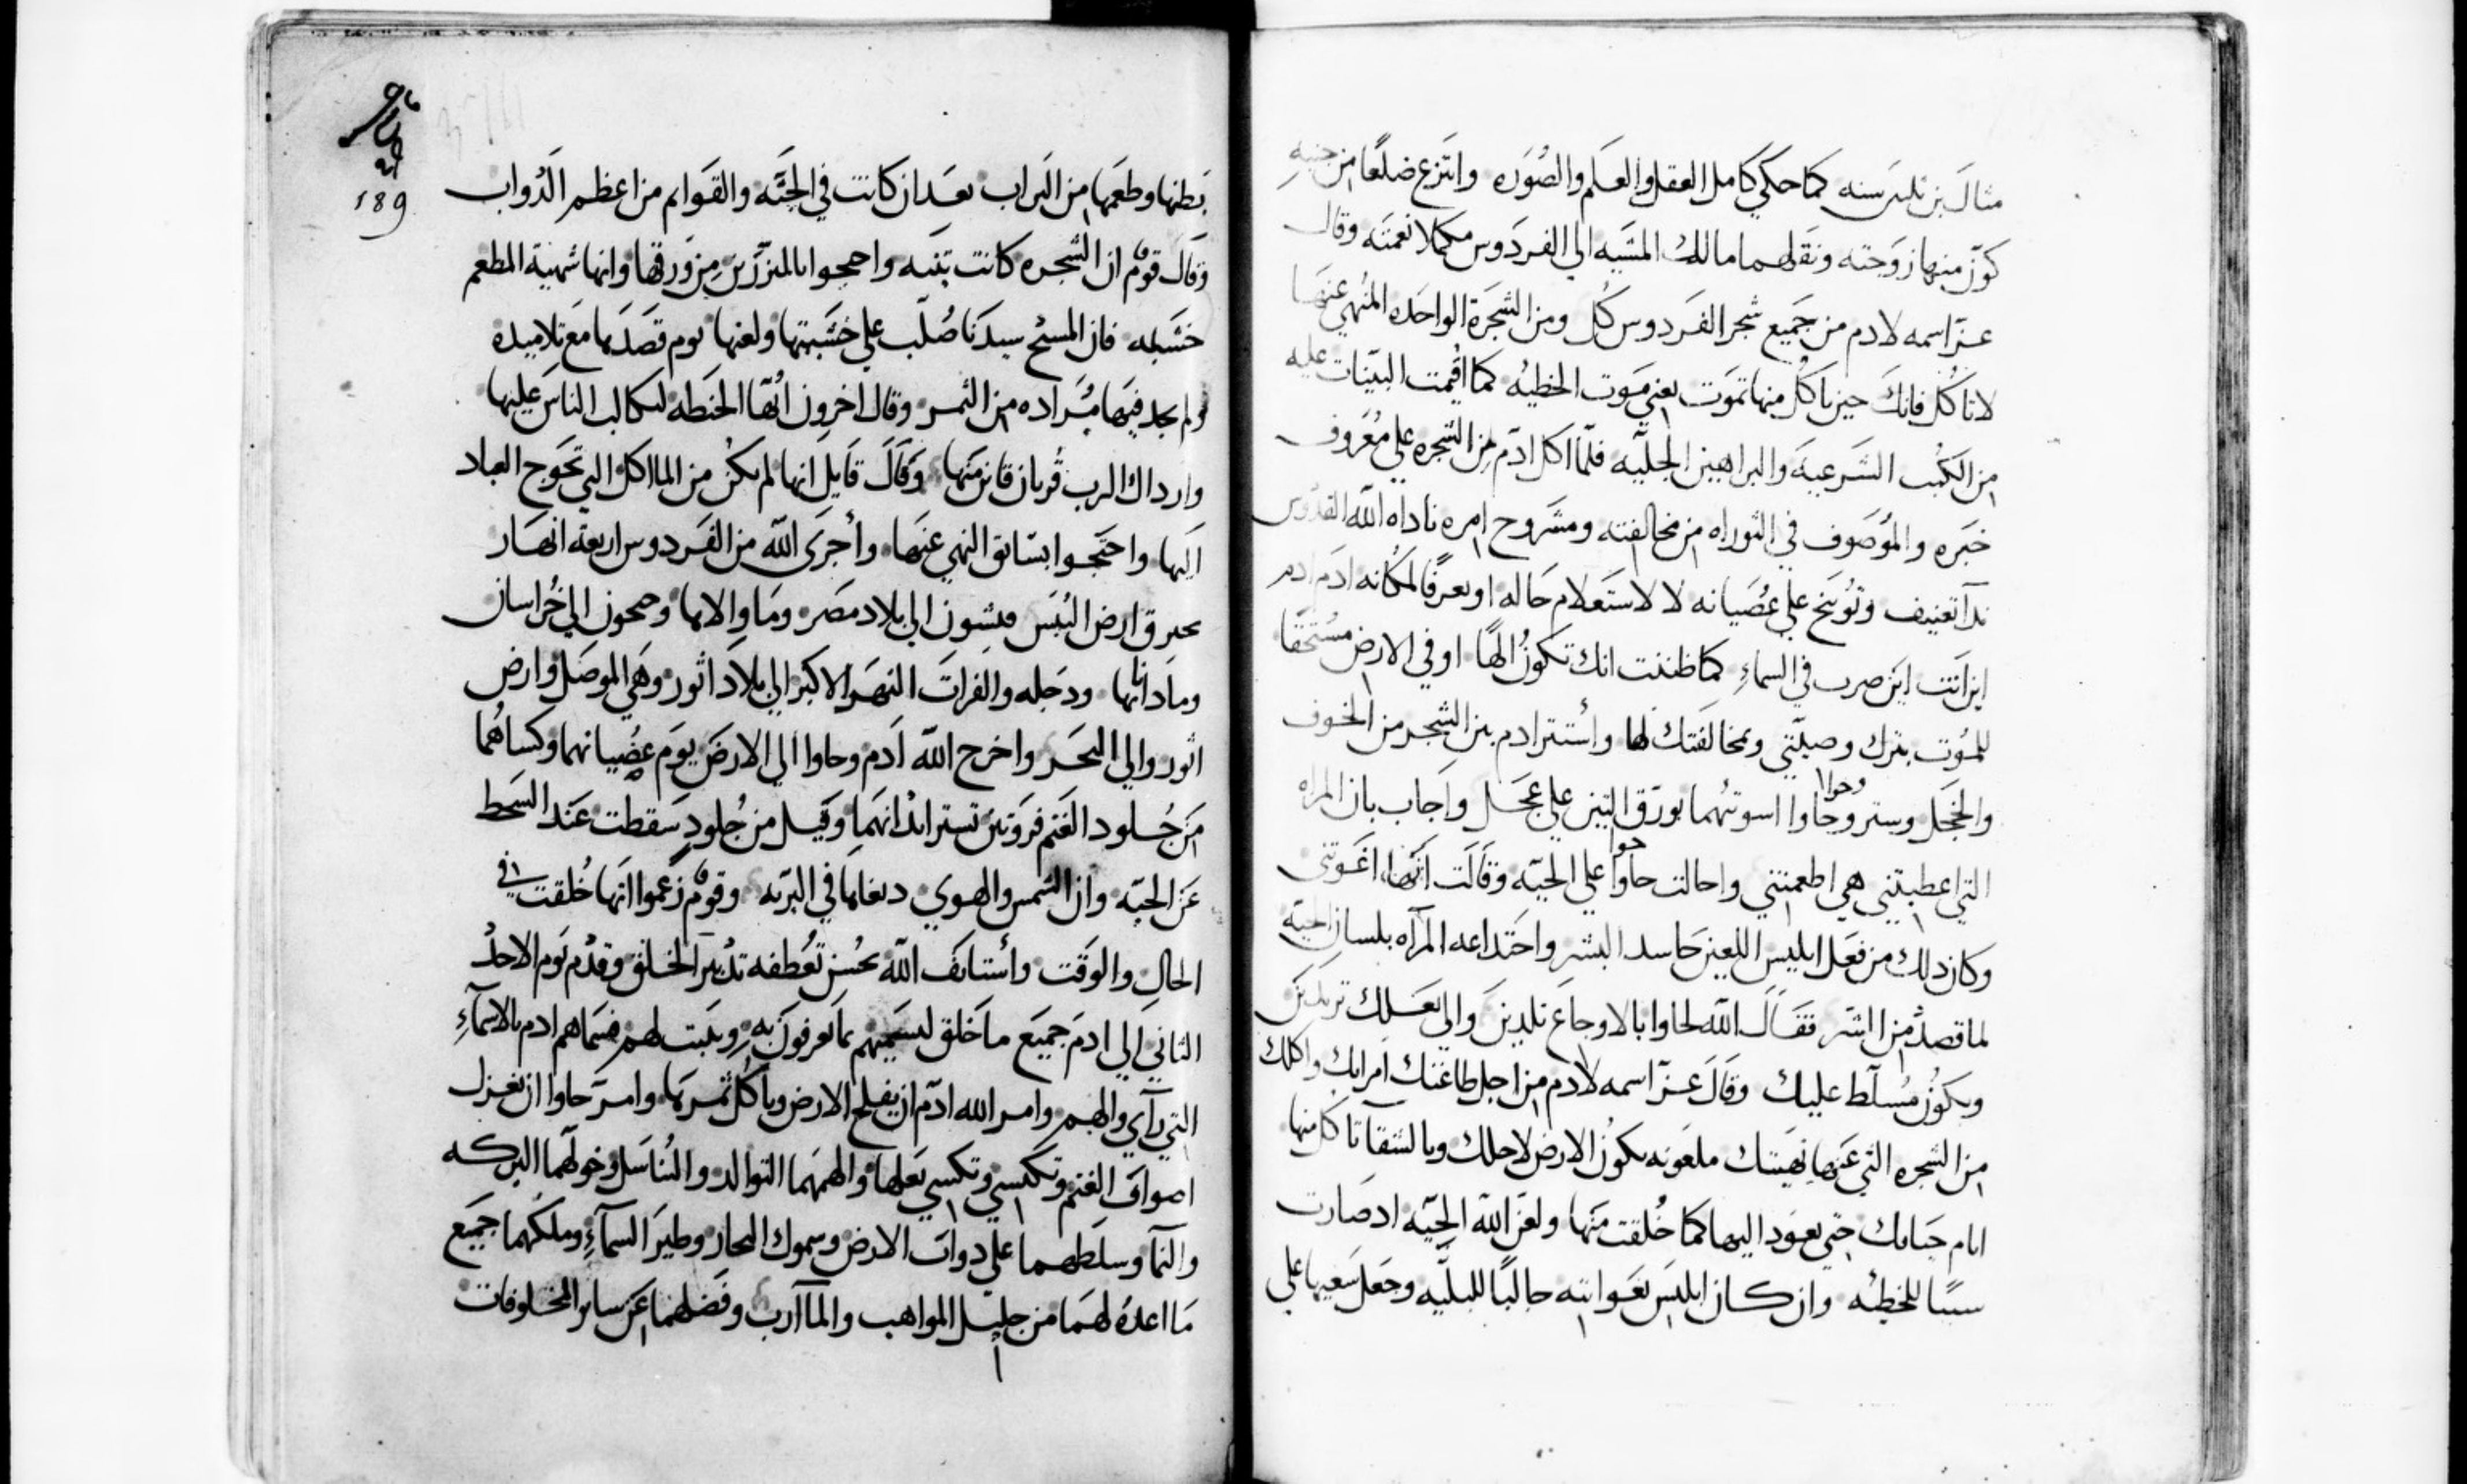 مثال بن ثلثين سنه كما حكي كامل العقل والعلم والصوره وانتزع ضلعًا من جنبه
كوّن منها زوجته ونقلهما مالك المشيه الي الفردوس مكملا نعمته وقال
عزّ اسمه لادم من جميع شجر الفردوس كُل ومن الشجرة الواحده المنهي عنها
لا تاكُل فانك حين تاكُل منها تموت يعني موت الخطيه كما اقيمت البيّنات عليه
من الكُتب الشرعيه والبراهين الجليّه فلمّا اكل ادم من الشجره علي معروف
خبره والموصوف في التوراه من مخالفته ومشروح امره ناداه الله القدّوس
ندآ تعنيف وتوبيخ علي عصيانه لا لاستعلام حاله او تعرّفًا لمكانه ادم ادم
اين انت اين صرت في السماءِ كما ظننت انك تكون الهًا او في الارض مستحقًا
للموت بترك وصيّتي ومخالفتك لها واستتر ادم بين الشجر من الخوف
والخجل وستر وحاوا وحوا اسوتهُما بورق التين علي عجل واجاب بان المراه
التي اعطيتني هي اطعمتني واحالت حاوا حوا علي الحيّه وقالت انها اغوتني
وكان ذلك من فعل ابليس اللعين حاسد البشر واختداعه المرآه بلسان الحيّه
لما قصد من الشر فقال الله لحاوا بالاوجاع تلدين والي بعلك تردين
ويكون مُسلّط عليك وقال عزّ اسمه لادم من اجل طاعتك امراتك واكلك
من الشجره التي عنها نهيتك ملعونه تكون الارض لاجلك وبالشقآ تاكل منها
ايام حياتك حتي تعود اليها كما خُلقت منها ولعن الله الحيّه اذ صارت
سببًا للخطيّه وان كان ابليس بغوايته جالبًا للبليّه وجعل سعيها علي
189
بطنها وطعمها من التراب بعد ان كانت في الجنّه والقوايم من اعظم الدواب
وقال قوم ان الشجره كانت تينه واحتجوا بالمتزرين من ورقها وانها شهية المطعم
خشبه فان المسيح سيدنا صُلّب علي خشبتها ولعنها يوم قصدها مع تلاميده
ولم يجد فيها مُراده من الثمر وقال اخرون انّها الحنطه لتكالب الناس عليها
وارداك الرب قُربان قاين منها وقال قايل انها لم تكن من الماكل التي تحوج العباد
اليها واحتجوا بسابق النهي عنها وأجرى الله من الفردوس اربعة انهار
تحرق ارض اليُبس فيشون الي بلاد مصر وما والاها وجيحون الي خُراسان
وما داناها ودجله والفرات النهر الاكبر الي بلاد اثور وهي الموصل وارض
اثور والي البحر واخرج الله ادم وحاوا الي الارض يوم عصيانهما وكساهُما
من جُلود الغنم فروتين تستر ابدانهما وقيل من جُلودٍ سقطت عند السخط
عن الحيّه وان الشمس والهوي دبغاها في البريه وقوم زعموا انها خُلقت في
الحال والوقت واستانف الله بحسن تعطفه تدبير الخلق وقدّم يوم الاحد
الثاني الي ادم جميع ما خلق ليسميهم بما يعرفون به ويثبت لهم فسماهم ادم بالاسمآءِ
التي رآي والهم وامر الله ادم ان يفلح الارض وياكُل ثمرتها وامر حاوا ان تغزل
اصواف الغنم وتكتسي وتكسي بعلها والهمهما التوالد والتُناسل وخولهما البركه
والنمآ وسلطهما علي دواب الارض وسموك البحار وطير السمآءِ وملكهما جميع
ما اعده لهما من جليل المواهب والمآرب وفضلهما عن ساير المخلوقات